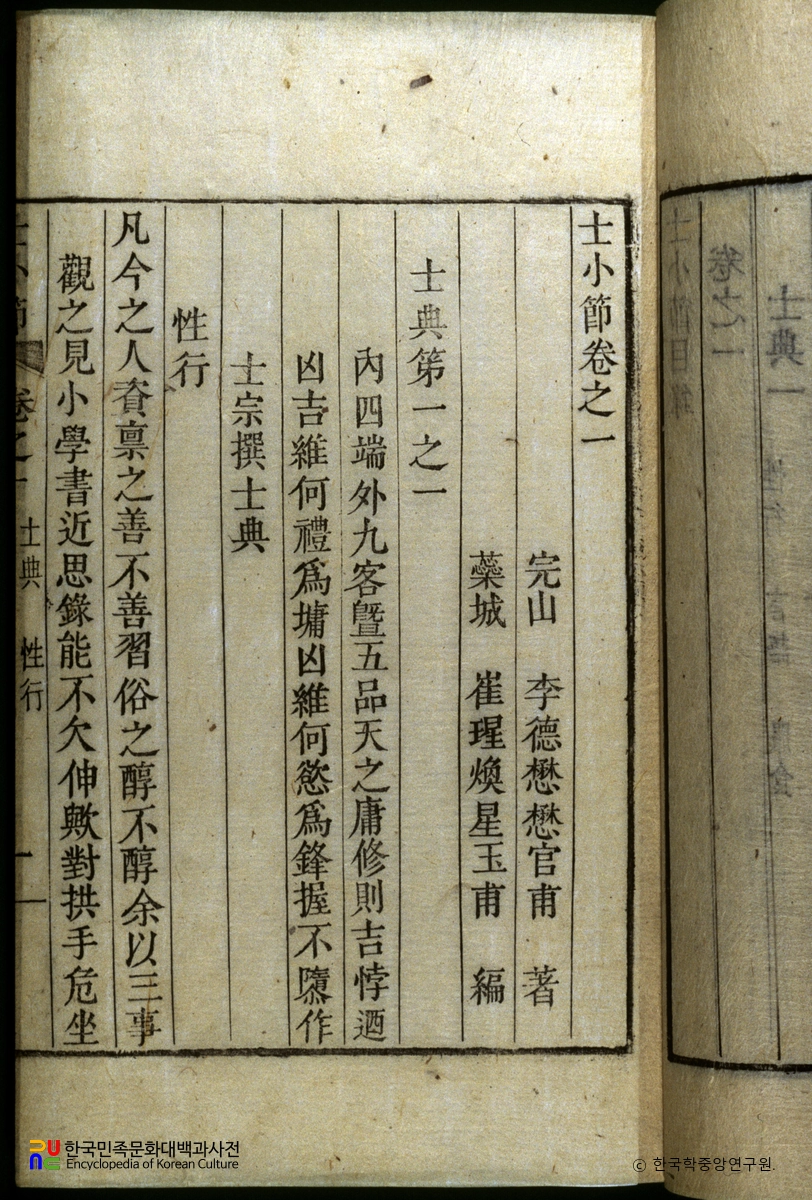 士小節卷之一
完山 李德懋懋官甫 著
蘂城 崔瑆煥星玉甫 編
士典第一之一
內四端外九容曁五品天之庸修則吉悖迺
凶吉維何禮爲墉凶維何慾爲鋒握不隳作
士宗撰士典
性行
凡今之人資禀之善不善習俗之醇不醇余以三事
觀之見小學書近思錄能不欠伸歟對拱手危坐
士小節 卷之一 士典 性行 一
士典一
卷之一
한국민족문화대백과사전
Encyclopedia of Korean Culture
ⓒ 한국학중앙연구원.